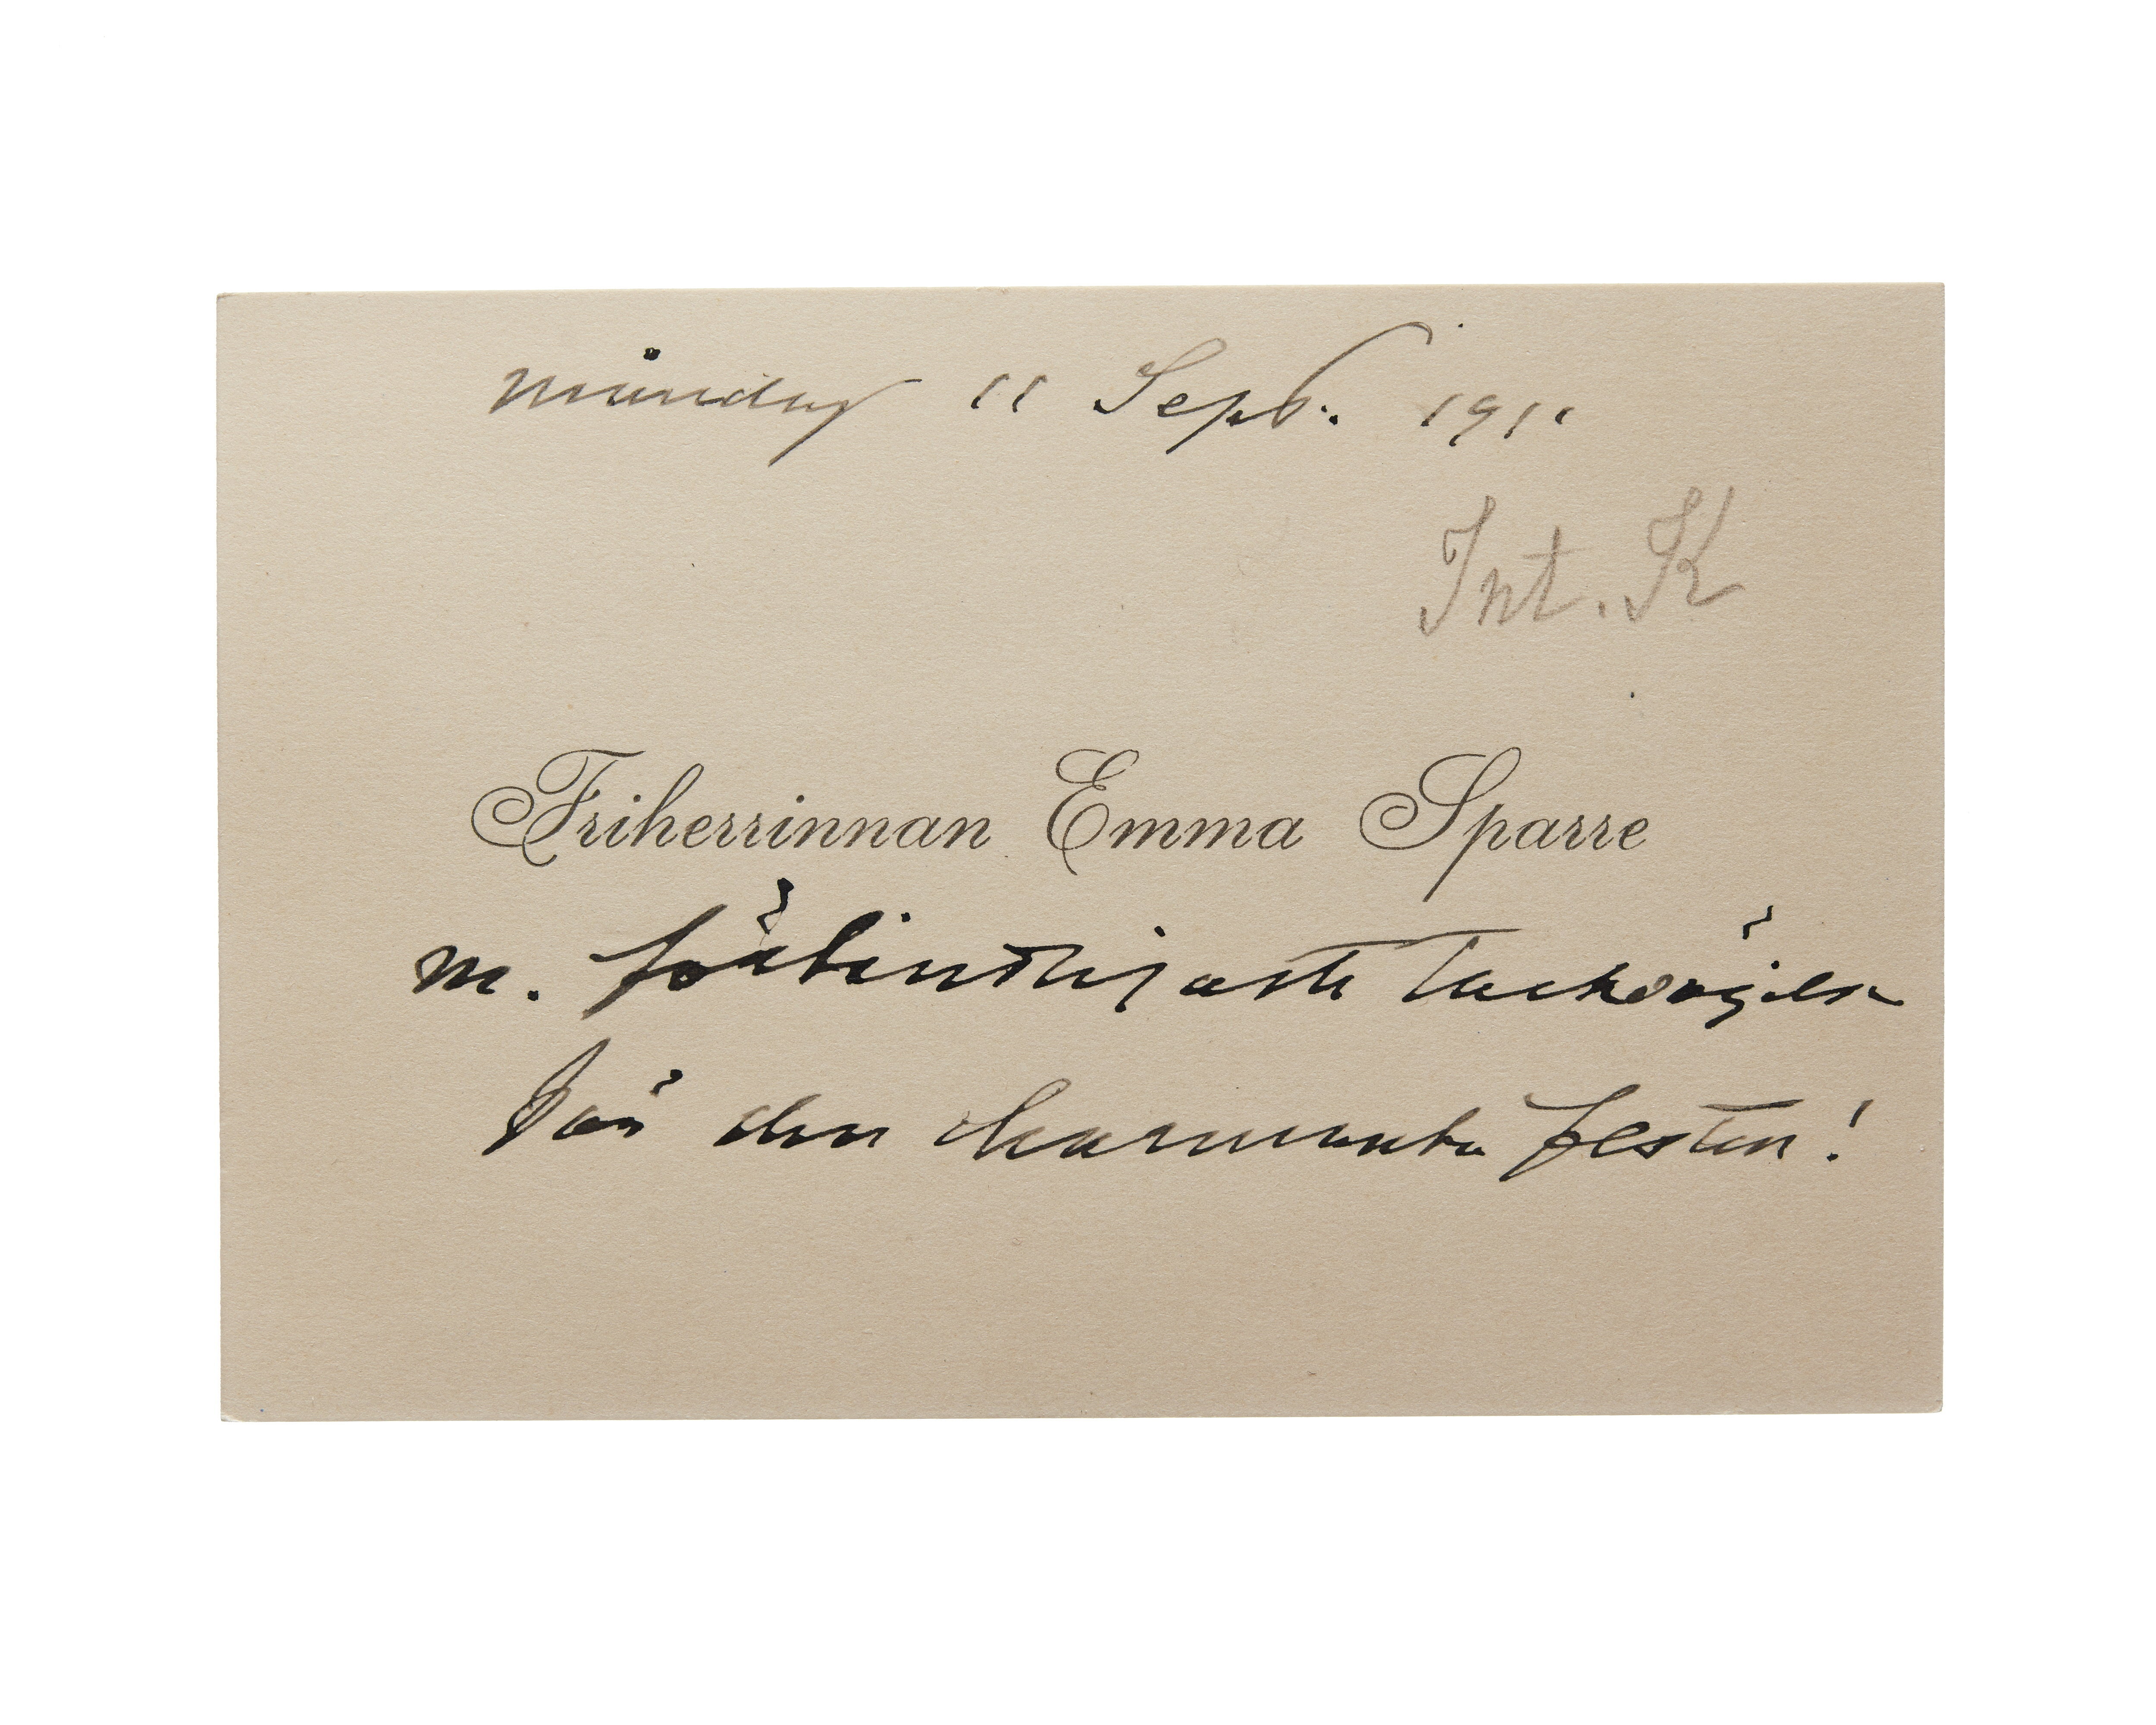 måndag 11 Sept. 1911
Int. K
Friherrinnan Emma Sparre
m. förbindligaste
för den charmanta festen!